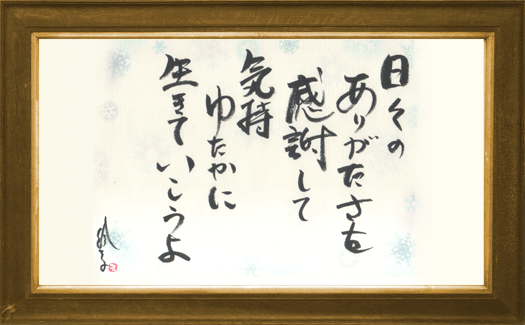 日々の
ありがたさを
感謝して
気持
ゆたかに
生きていこうよ